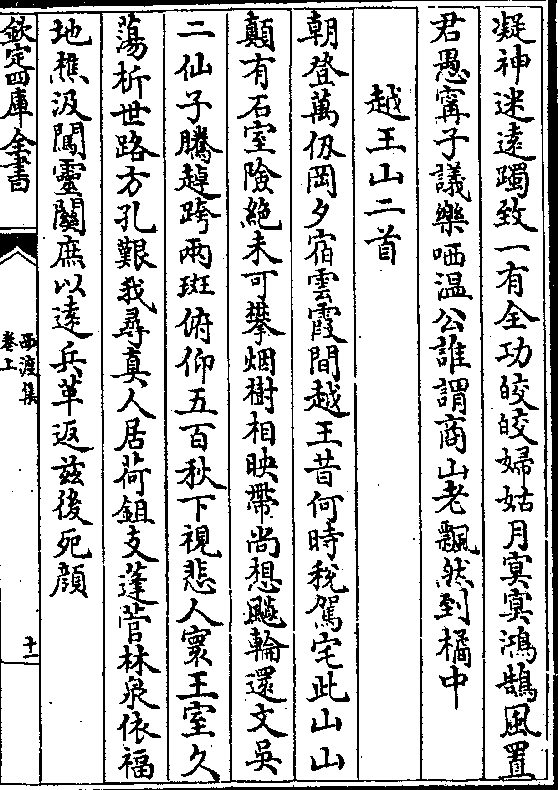 凝神迷遠躅致一有全功皎皎婦姑月寞寞鴻鵠風置
君愚寗子議樂哂温公誰謂商山老飄然到橘中
越王山二首
朝登萬仭岡夕宿雲霞間越王昔何時稅駕宅此山山
顛有石室險絶未可攀烟樹相映帶尚想飈輪還文吳
二仙子騰趠跨兩斑俯仰五百秋下視悲人寰王室久
蕩析世路方孔艱我尋真人居荷鉏支蓬菅林泉依福
地樵汲闖靈關庶以逺兵革返兹後死顔
欽定四庫全書
西渡集
卷上
十一